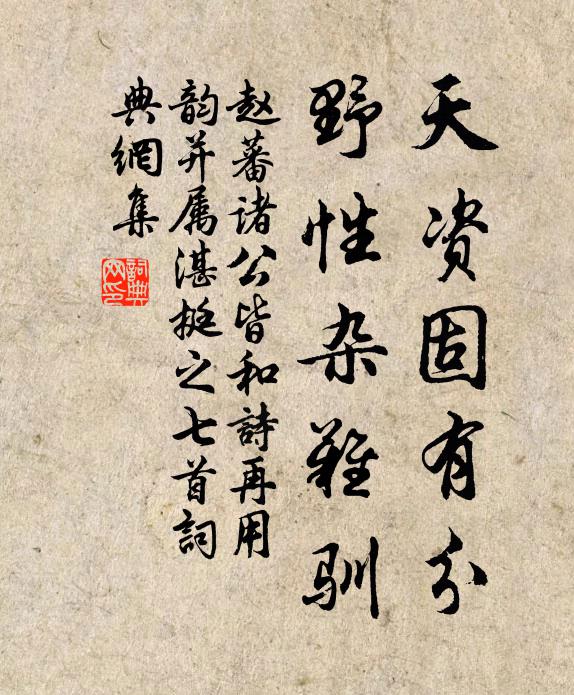 天资固有分
野性杂难驯
赵蕃诸公皆和詩再用
韵并属湛挺之七首詞
典網集
詞典网印